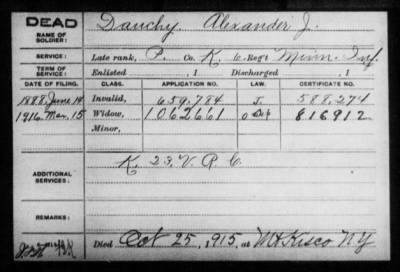 DEAD
NAME OF SOLDIER:
Dauchy, Alexander J.
SERVICE:
Late rank, P. Co. K, 6 Reg't Minn. Inf.
TERM OF SERVICE:
Enlisted , 1 Discharged , 1
DATE OF FILING. CLASS. APPLICATION NO. LAW. CERTIFICATE NO.
1888 June 14 Invalid, 659.784 J. 588.274
1916 Mar. 15 Widow, 1062661 816912
Minor,
ADDITIONAL SERVICES:
K. 23 V.R.C.
REMARKS:
Died Oct 25, 1915, at Mt Kisco NY